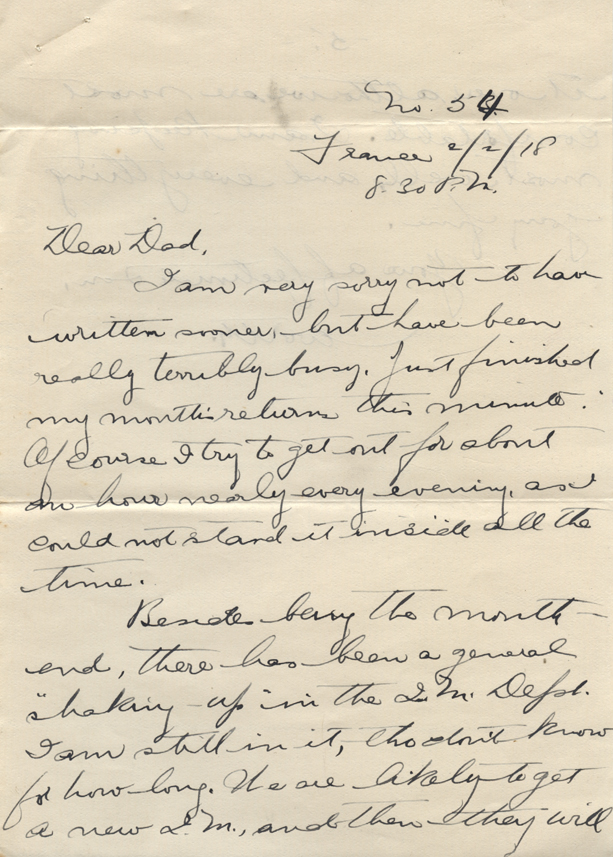 No. 54
France 2/2/18
8.30 P.M.
Dear Dad,
I am very sorry not to have
written sooner, but have been
really terribly busy. Just finished
my month's returns this minute.
Of course I try to get out for about
an hour nearly every evening, as I
could not stand it inside all the
time.
Besides being the month-
end, there has been a general
"shaking-up" in the Q.M. Dept.
I am still in it, tho don't know
for how long. We are likely to get
a new Q.M., and then they will